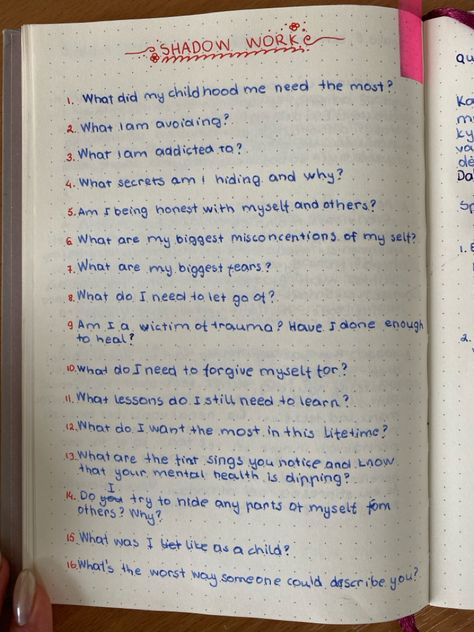 SHADOW WORK
1. What did my childhood me need the most?
2. What I am avoiding?
3. What I am addicted to?
4. What secrets am I hiding and why?
5. Am I being honest with myself and others?
6. What are my biggest misconcentions of my self?
7. What are my biggest fears?
8. What do I need to let go of?
9 Am I a victim of trauma? Have I done enough
to heal?
10. What do I need to forgive myself for?
11. What lessons do I still need to learn?
12. What do I want the most in this lifetime?
13. What are the first sings you notice and know
that your mental health is dipping?
14. Do I try to hide any parts of myself fom
others? Why?
15. What was I like as a child?
16. What's the worst way someone could describe you?
qu
Ka
m
ky
va
de
Da
Sp
1.
2.